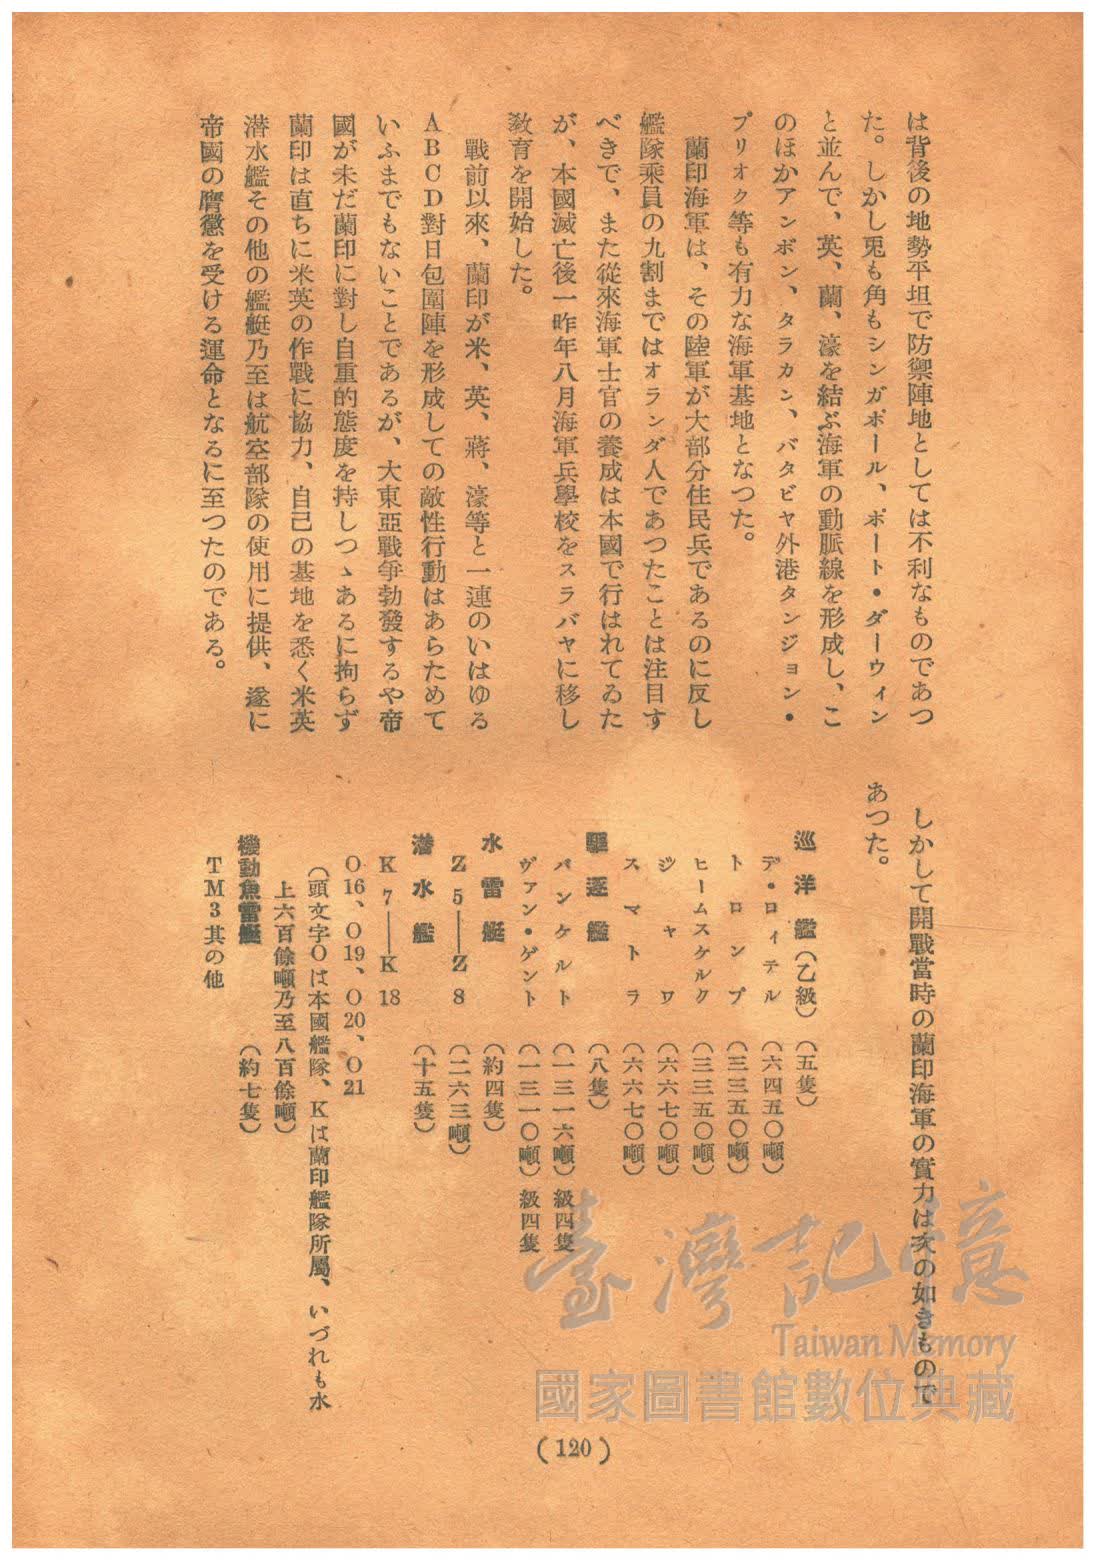 は背後の地勢平坦で防禦陣地としては不利なものであつ
た。しかし兎も角もシンガポール、ポート・ダーウィン
と並んで、英、蘭、濠を結ぶ海軍の動脈線を形成し、こ
のほかアンボン、タラカン、バタビヤ外港タンジョン・
プリオク等も有力な海軍基地となつた。
蘭印海軍は、その陸軍が大部分住民兵であるのに反し
艦隊乘員の九割まではオランダ人であつたことは注目す
べきで、また從來海軍士官の養成は本國で行はれてゐた
が、本國滅亡後一昨年八月海軍兵學校をスラバヤに移し
敎育を開始した。
戰前以來、蘭印が米、英、蔣、濠等と一連のいはゆる
ABCD對日包圍陣を形成しての敵性行動はあらためて
いふまでもないことであるが、大東亞戰爭勃發するや帝
國が未だ蘭印に對し自重的態度を持しつゝあるに拘らず
蘭印は直ちに米英の作戰に協力、自己の基地を悉く米英
潜水艦その他の艦艇乃至は航空部隊の使用に提供、遂に
帝國の膺懲を受ける運命となるに至つたのである。
しかして開戰當時の蘭印海軍の實力は次の如きもので
あつた。
巡洋艦(乙級)(五隻)
デ・ロイテル(六四五〇噸)
トロンプ(三三五〇噸)
ヒームスケルク(三三五〇噸)
ジャワ(六六七〇噸)
スマトラ(六六七〇噸)
驅逐艦(八隻)
バンケルト(一三一六噸)級四隻
ヴァン・ゲント(一三一〇噸)級四隻
水雷艇(約四隻)
Z5——Z8(二六三噸)
潜水艦(十五隻)
K7——K18
O16、O19、O20、O21
(頭文字Oは本國艦隊、Kは蘭印艦隊所屬、いづれも水
上六百餘噸乃至八百餘噸)
機動魚雷艇(約七隻)
TM3其の他
(120)
臺灣記憶
Taiwan Memory
國家圖書館數位典藏